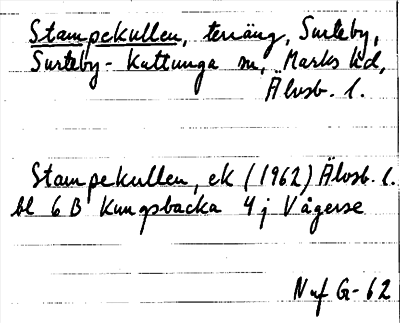 Stampekullen, terräng, Surteby,
Surteby-Kattunga sn, Marks hd,
Älvsb. l.
Stampekullen, ek (1962) Älvsb. l.
bl 6 B Kungsbacka 4 j Vågerse
Naf G-62